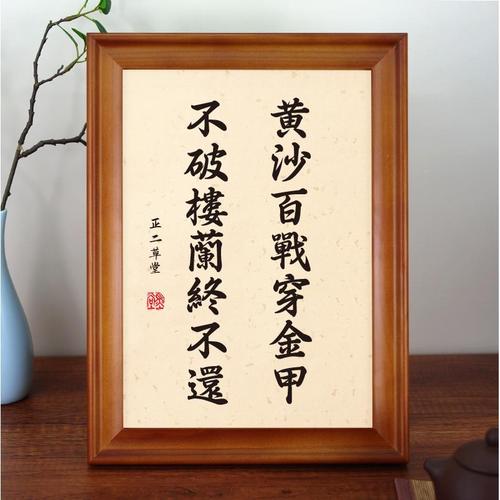 黄沙百戰穿金甲
不破樓蘭終不還
正二草堂